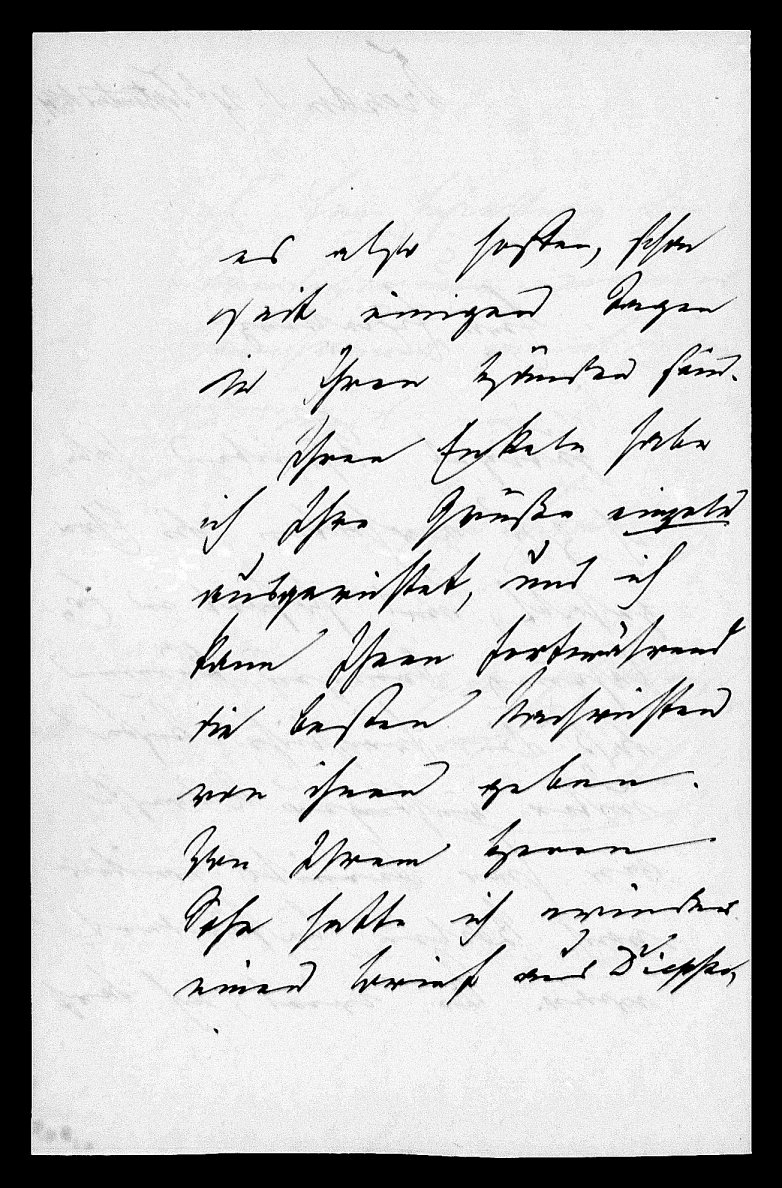 es also hoffen, schon
seit einigen Tagen
in Ihren Händen sein.
Ihren Enkeln habe
ich Ihre Grüße einzeln
ausgerichtet, und ich
kann Ihnen fortwährend
die besten Nachrichten
von ihnen geben.
Von Ihrem Herrn
Sohn hatte ich wieder
einen Brief aus Dieppe,